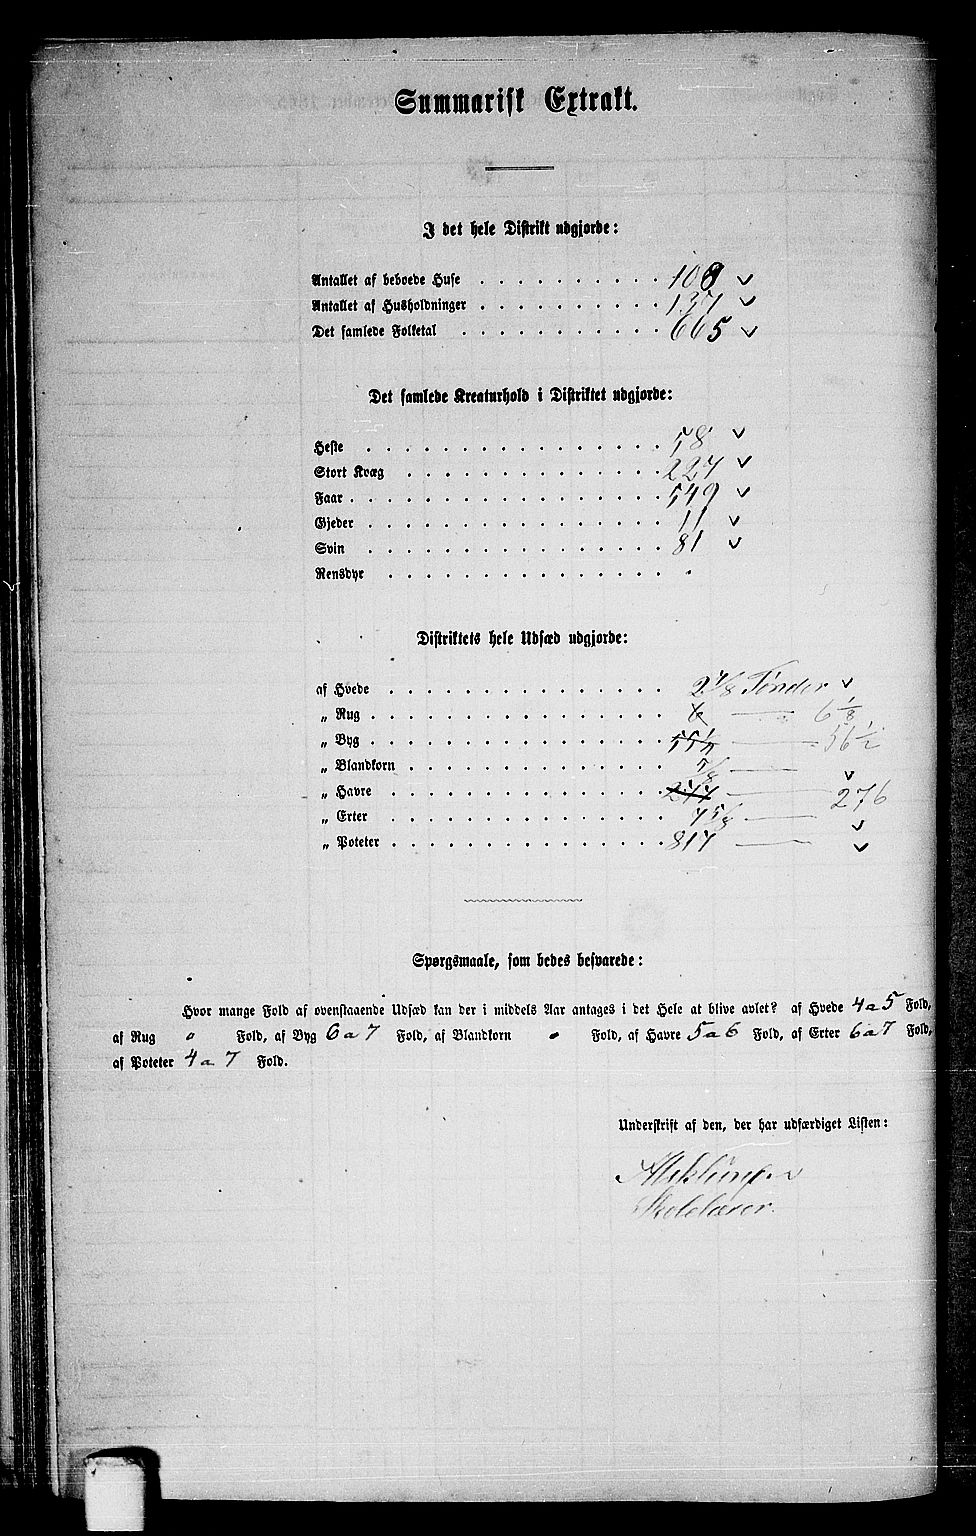 Summarisk Extrakt.
I det hele Distrikt udgjorde:
Antallet af beboede Huse . . . . . . . . . . 108 v
Antallet af Husholdninger . . . . . . . . . . 137 v
Det samlede Folketal . . . . . . . . . . . 665 v
Det samlede Kreaturhold i Distriktet udgjorde:
Heste . . . . . . . . . . . . . . . . 58 v
Stort Kvæg . . . . . . . . . . . . . . 227 v
Faar . . . . . . . . . . . . . . . . . 549 v
Gjeder . . . . . . . . . . . . . . . . 11 v
Svin . . . . . . . . . . . . . . . . 81 v
Rensdyr . . . . . . . . . . . . . . . .
Distriktets hele Udsæd udgjorde:
af Hvede . . . . . . . . . . . . . . . 2 7/8 Tønder v
„ Rug . . . . . . . . . . . . . . . . 6 — 6 1/8
„ Byg . . . . . . . . . . . . . . . . — 56 1/2
„ Blandkorn . . . . . . . . . . . . . . 7/8 —
„ Havre . . . . . . . . . . . . . . . — 276 v
„ Erter . . . . . . . . . . . . . . . 7 5/8 — v
„ Poteter . . . . . . . . . . . . . . . 817 — v
Spørgsmaale, som bedes besvarede:
Hvor mange Fold af ovenstaaende Udsæd kan der i middels Aar antages i det Hele at blive avlet? af Hvede 4 a 5 Fold,
af Rug " Fold, af Byg 6 a 7 Fold, af Blandkorn Fold, af Havre 5 a 6 Fold, af Erter 6 a 7 Fold,
af Poteter 4 a 7 Fold.
Underskrift af den, der har udfærdiget Listen:
Skolelærer.